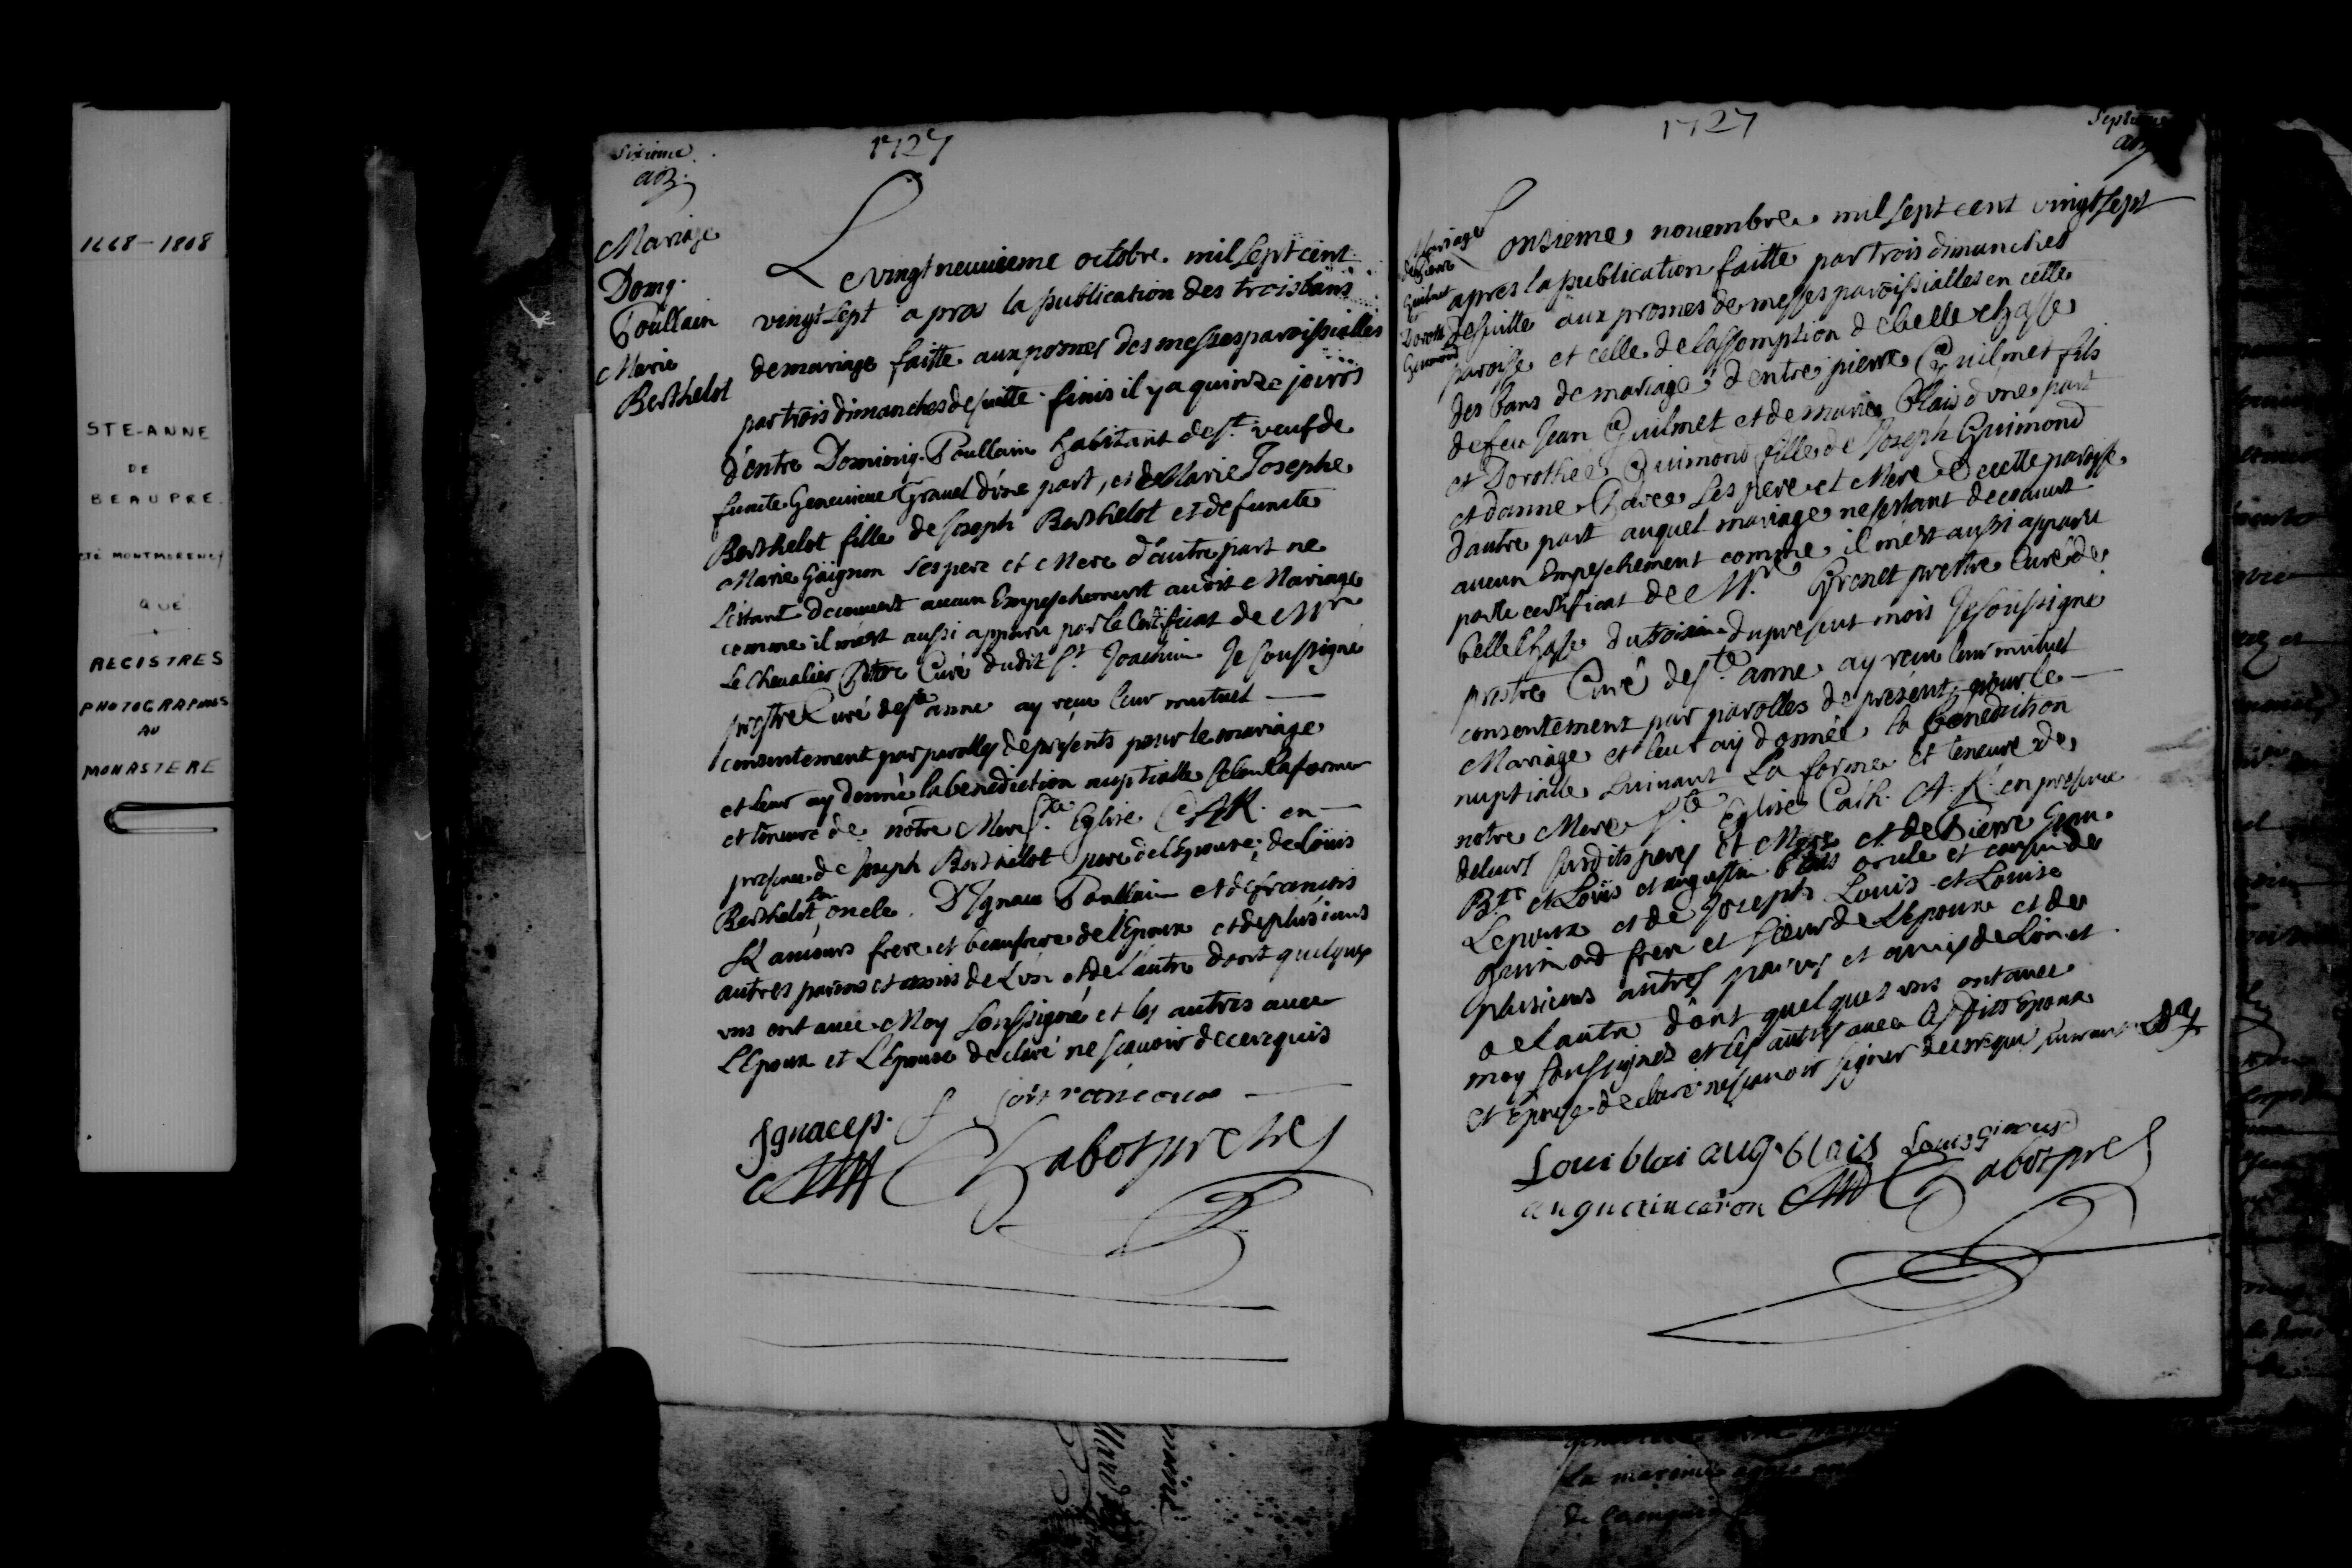 1668-1808
STE-ANNE
DE
BEAUPRE
CTÉ MONTMORENCY
QUÉ.
REGISTRES
PHOTOGRAPHIÉS
AU
MONASTERE
Sixieme
1727
Mariage
Doмq.
Poullain
Marie
Berthelot
Le vingt neuvieme octobre. mil sept cent
vingt sept apres la publication des trois bans
de mariage faitte aux prosnes des messes paroissialles
par trois dimanches de suitte finis il y a quinze jours
d'entre Dominiq. Poullain habitant de st. veuf de
functe Genevieve Gravel d'vne part, et de Marie Josephe
Berthelot fille de Joseph Berthelot et defuncte
Marie Gaignon ses pere et Mere d'autre part ne
s'estant decouvert aucun Empeschement audit Mariage
comme il m'est aussi apparu par le Certificat de Mr
Le Chevalier Ptre Curé dudit St. Joachim Je soussigné
prestre Curé de ste anne ay reçu leur mutuel
consentement par parolles de presents pour le mariage
et leur ay donné la benediction nuptialle selon la forme
et teneure de nôtre Mere Ste. Eglise C A R. en
presence de Joseph Berthelot pere de l'Epouse, de Loüis
Berthelot son oncle. D'Ignace Poullain et de francois
frere et beaufrere de l'Epoux et de plusieurs
autres parens et amis de L'vn et de l'autre dont quelques
vns ont avec Moy Soussigné et les autres avec
L'Epoux et L'Epouse declaré ne scavoir de ce requis
Ignace p.
Chabot pretre
1727
Septieme
Mariage
de pierre
Guilmet
Doroth
Guimond
L onzieme novembre mil sept cent vingt sept
apres la publication faitte par trois dimanches
de suitte aux prosnes de messes paroissialles en cette
paroisse et celle de lassomption de bellechasse
des bans de mariage d'entre pierre Guilmet fils
de feu Jean Guilmet et de marie Blais d'vne part
et Dorothée Guimond fille de Joseph Guimond
et d'anne ses pere et Mere de cette paroisse
d'autre part auquel mariage ne s'estant decouvert
aucun Empeschement comme il m'est aussi apparu
par le certificat de Mr. prestre Curé de
bellechasse du troisieme du present mois Je soussigné
prestre Curé de ste. anne ay reçu leur mutuel
consentement par parolles de présent, pour le
Mariage et leur ay donnée la benediction
nuptialle suivant La forme et teneure de
notre Mere Ste Eglise Cath. A. R. en presence
de leurs susdits peres et Mere et de Pierre Jean
Bte et Loüis et augustin blais oncle et cousin de
L'epoux et de Joseph Louis et Louise
Guimond frere et soeur de L'Epouse et de
plusieurs autres parens et amis de L'vn et
de l'autre dont quelques vns ont avec
moy soussignés et les autres avec lesdits Epoux
et Epouse declaré ne scavoir signer de ce requis suivant
Loui blai aug. blais Louis gimond
caron Chabot pre